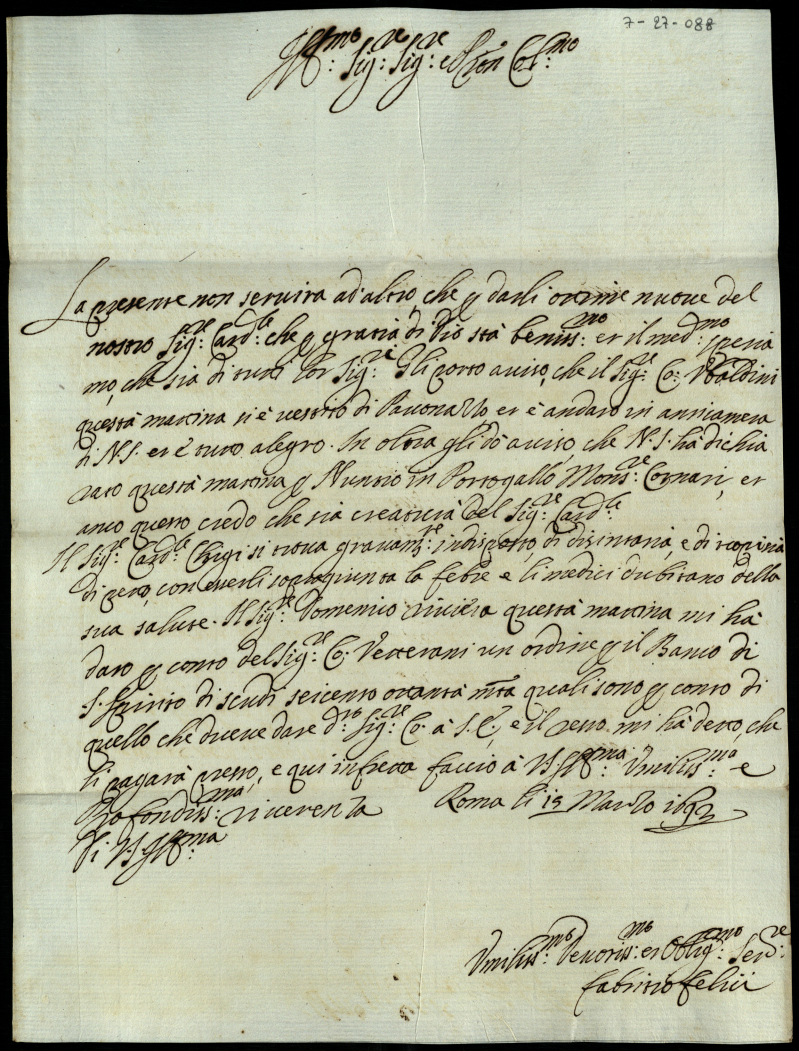 7-27-088
Ill:mo Sig:re Sig:re e Pron Col:mo
La presente non servira ad'altro, che p darli ottime nuove del
nostro Sig:re Card:le che p gratia di Dio stà beniss:mo et il med:mo speria
mo, che sia di tutti lor Sig:ri. Gli porto aviso, che il Sig:re Co: Ubaldini
questa mattina si è vestito di Pavonazzo et è andato in anticamera
di N.S. et è tutto alegro. In oltra gli dò aviso, che N.S. hà dichia
rato questa mattina p Nuntio in Portogallo Mons:re Cornari, et
anco questo credo che sia creatura del Sig:re Card:le
Il Sig:re Card:le Chigi si trova gravam:te indisposto, di disintaria, e di
di petto, con esserli sopragiunta la febre e li medici dubitano della
sua salute. Il Sig:re Domenico Riviera questa mattina mi hà
dato p conto del Sig:re Co: Vetterani un ordine p il Banco di
S. Spirito di scudi seicento ottanta mta quali sono p conto di
quello che deve dare d:to Sig:re Co: à S.E., e il resto mi hà detto, che
li pagarà presto, e qui in fretta faccio à V.S. Ill:ma Umiliss:ma e
Profondiss:ma riverenza Roma li 15 Marzo 1692
Di V.S. Ill:ma
Umiliss:mo Devotis:mo et Oblig:mo Ser:re
Fabritio Felici